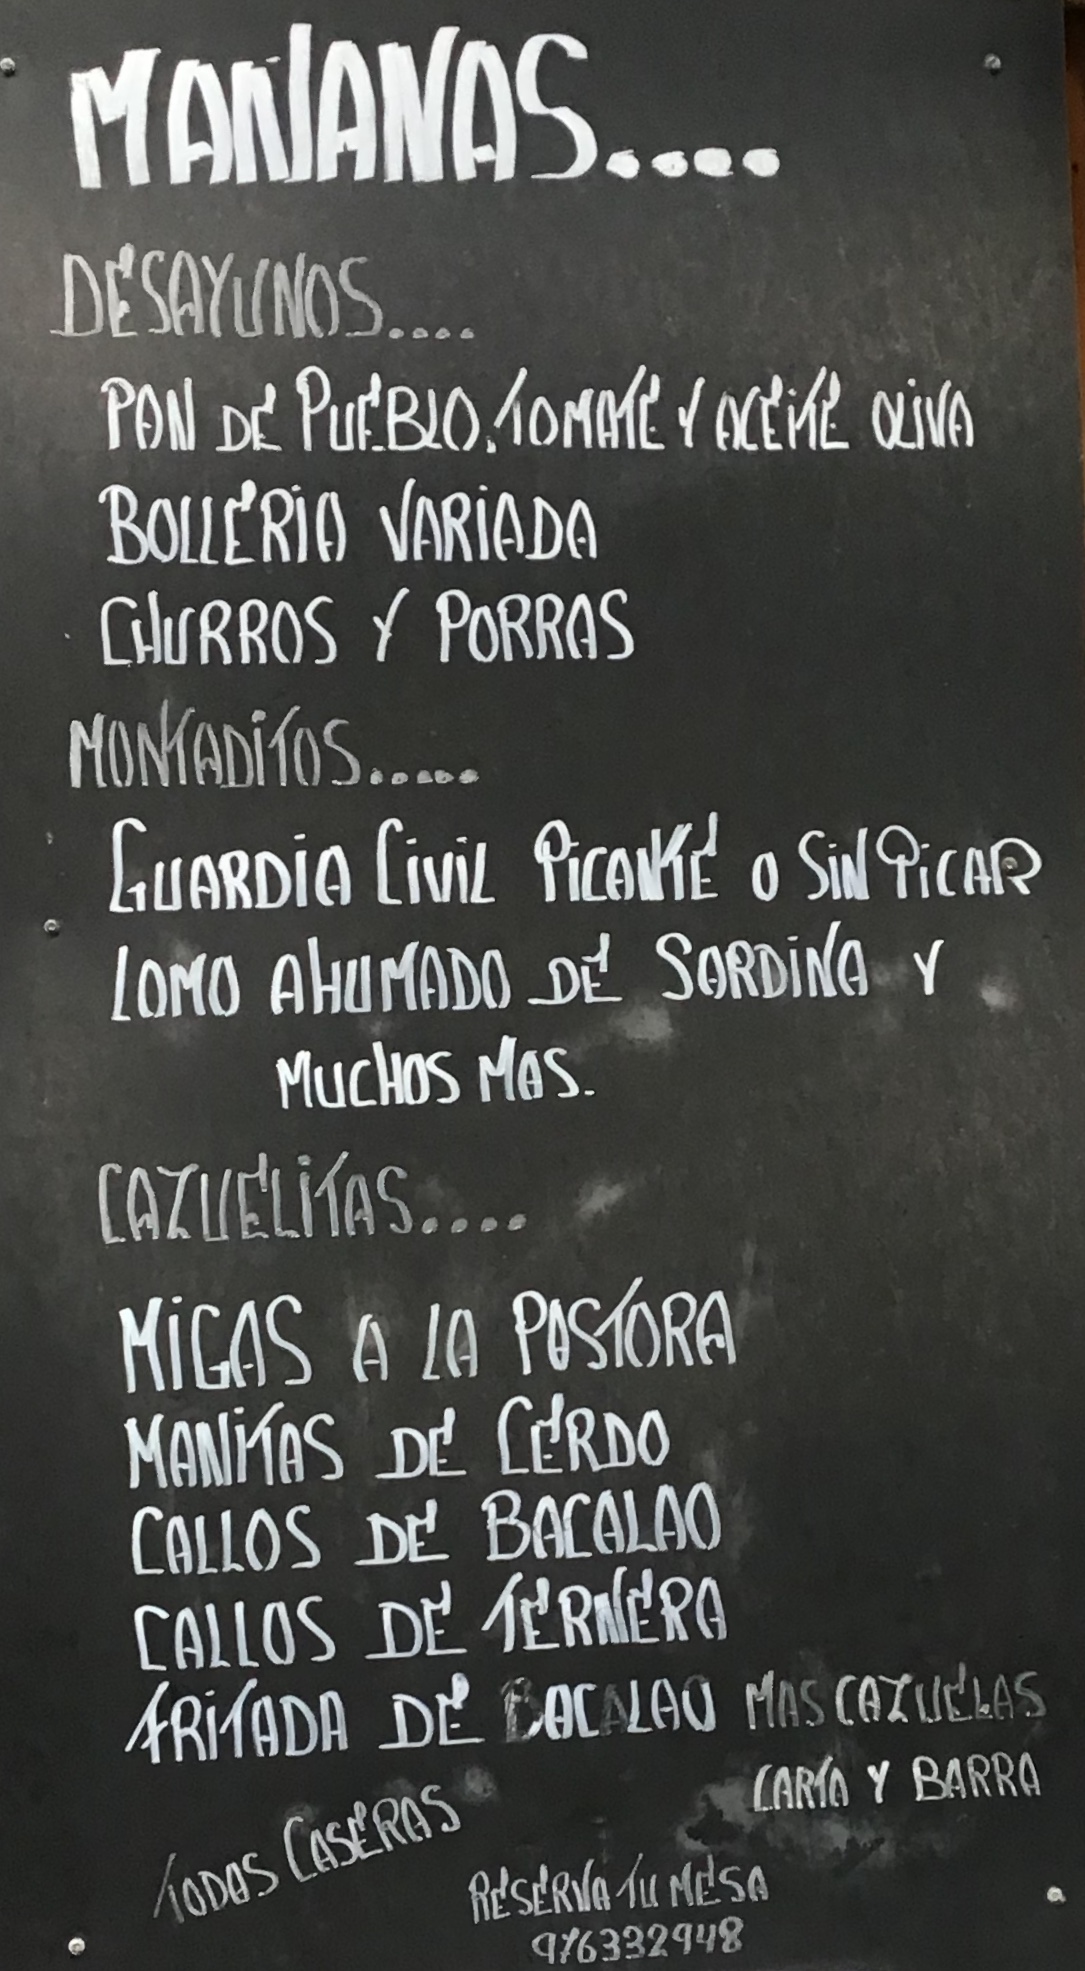 MAÑANAS....
DESAYUNOS....
PAN DE PUEBLO, TOMATE Y ACEITE OLIVA
BOLLERIA VARIADA
CHURROS Y PORRAS
MONTADITOS.....
GUARDIA CIVIL PICANTE O SIN PICAR
LOMO AHUMADO DE SARDINA Y
MUCHOS MAS.
CAZUELITAS....
MIGAS A LA PASTORA
MANITAS DE CERDO
CALLOS DE BACALAO
CALLOS DE TERNERA
FRITADA DE BACALAO MAS CAZUELAS
CARTA Y BARRA
TODAS CASERAS
RESERVA TU MESA
976332948